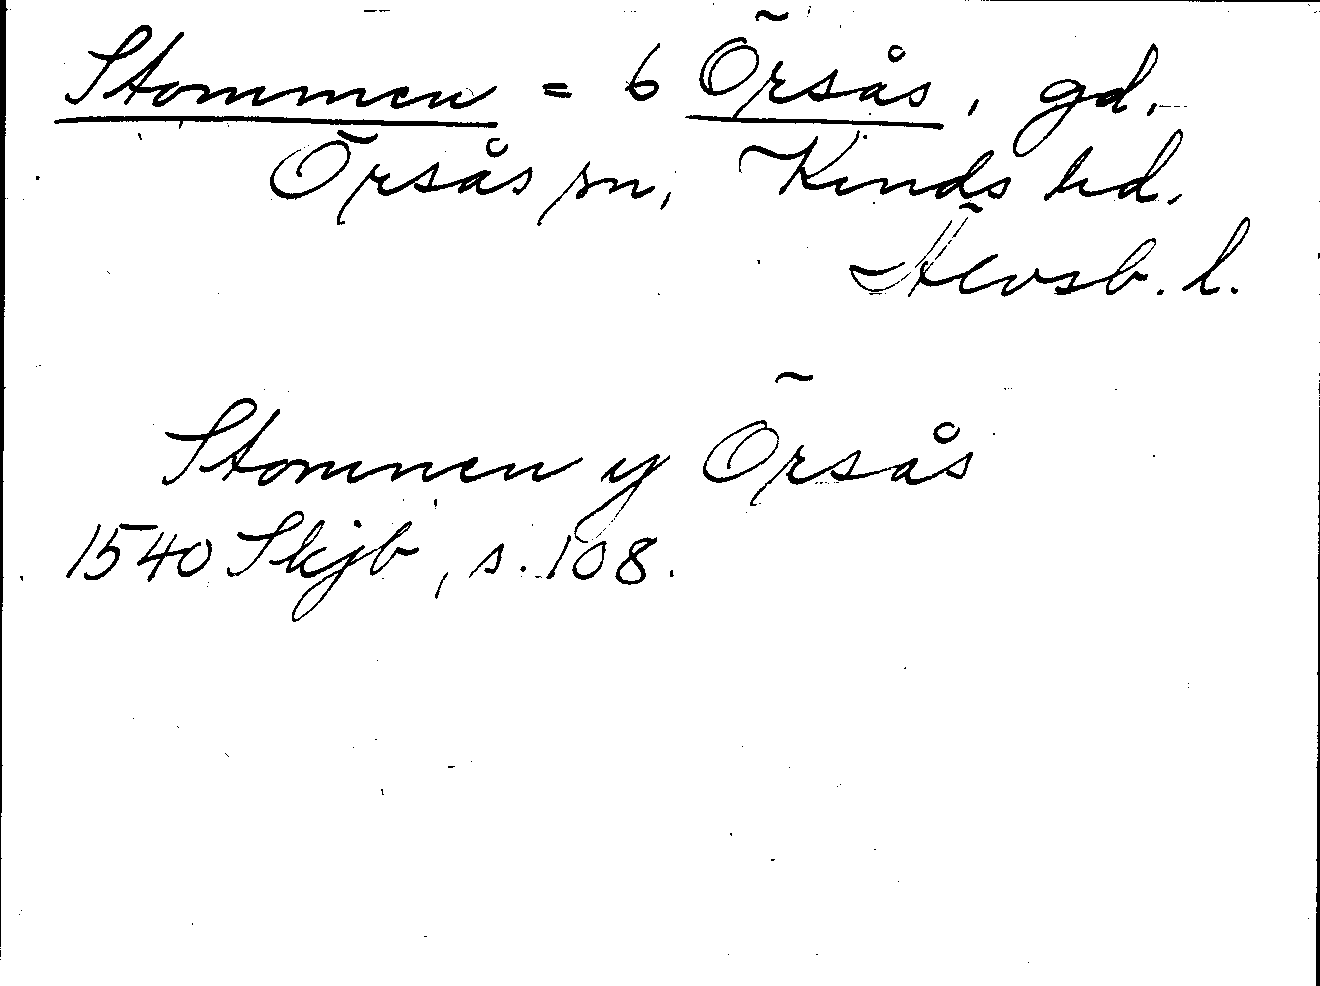 Stommen = 6 Örsås, gd.
Örsås sn, Kinds hd.
Älvsb. l.
Stommen y Örsås
1540 Skjb, s. 108.